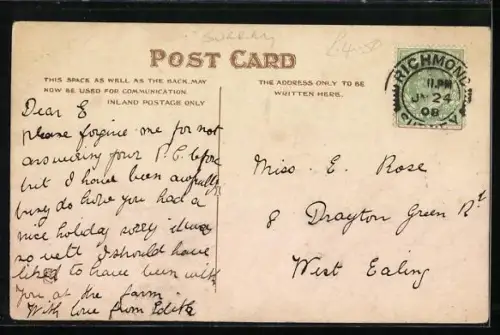 POST CARD
THIS SPACE AS WELL AS THE BACK MAY
NOW BE USED FOR COMMUNICATION
INLAND POSTAGE ONLY
THE ADDRESS ONLY TO BE
WRITTEN HERE.
£4-50
RICHMOND
11.PM
24
08
SURREY
Dear E
please forgive me for not
answering your P.C. before
but I have been awfully
busy do hope you had a
nice holiday sorry it was
so wet I should have
liked to have been with
you at the farm.
With love from Edith
Miss E. Rose
8 Drayton Green Rd
West Ealing